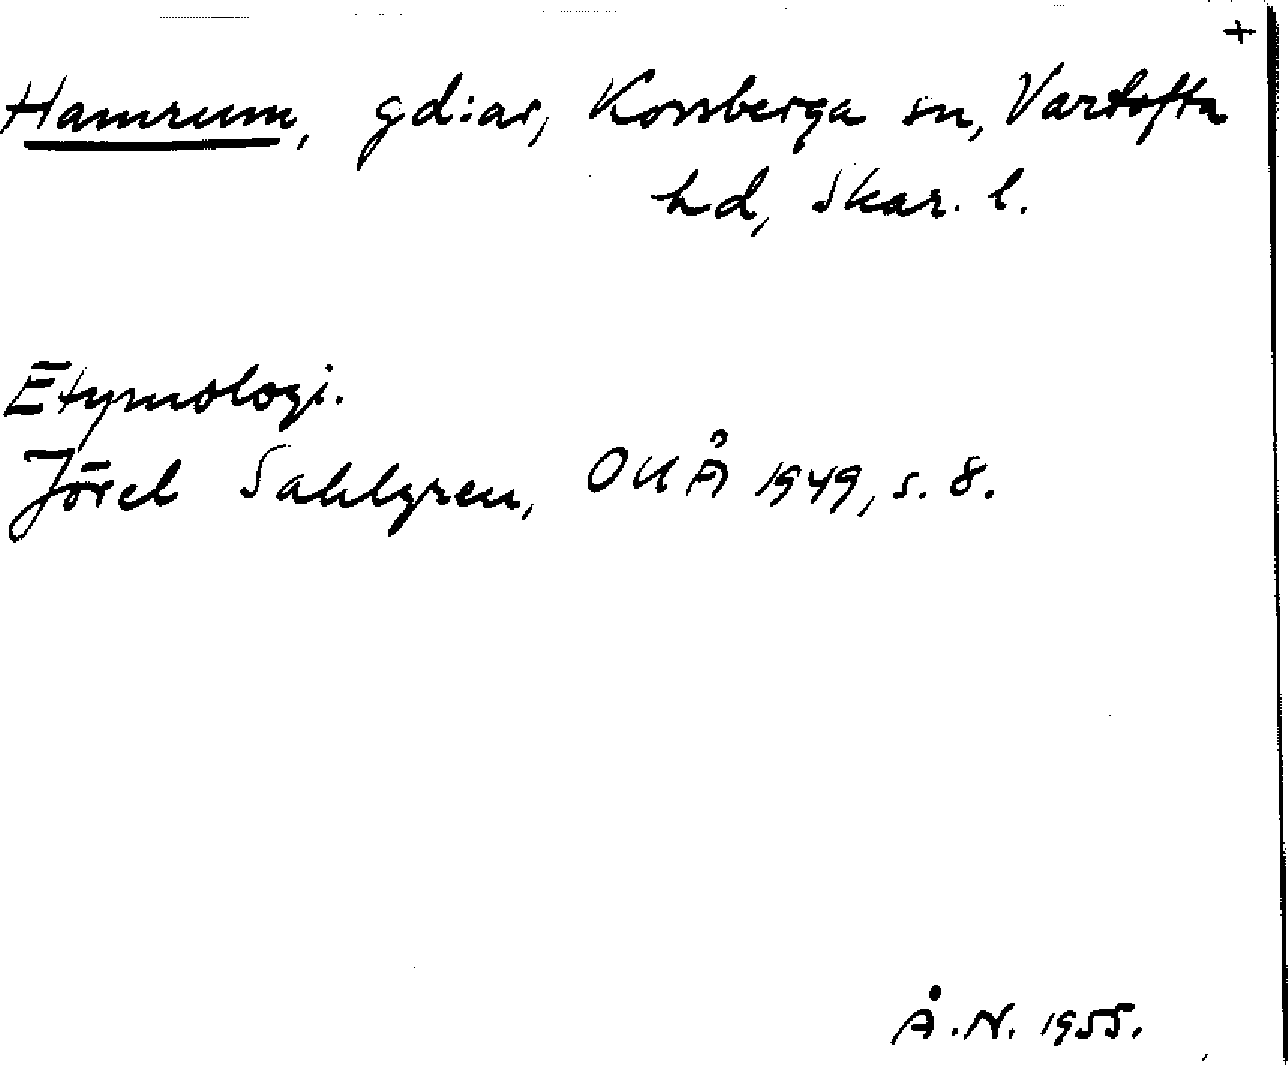 +
Hamrum, gd:ar, Korsberga sn, Vartofta
hd, Skar. l.
Etymologi.
Jöret Sahlgren, OUÅ 1949, s. 8.
Å.N. 1955.